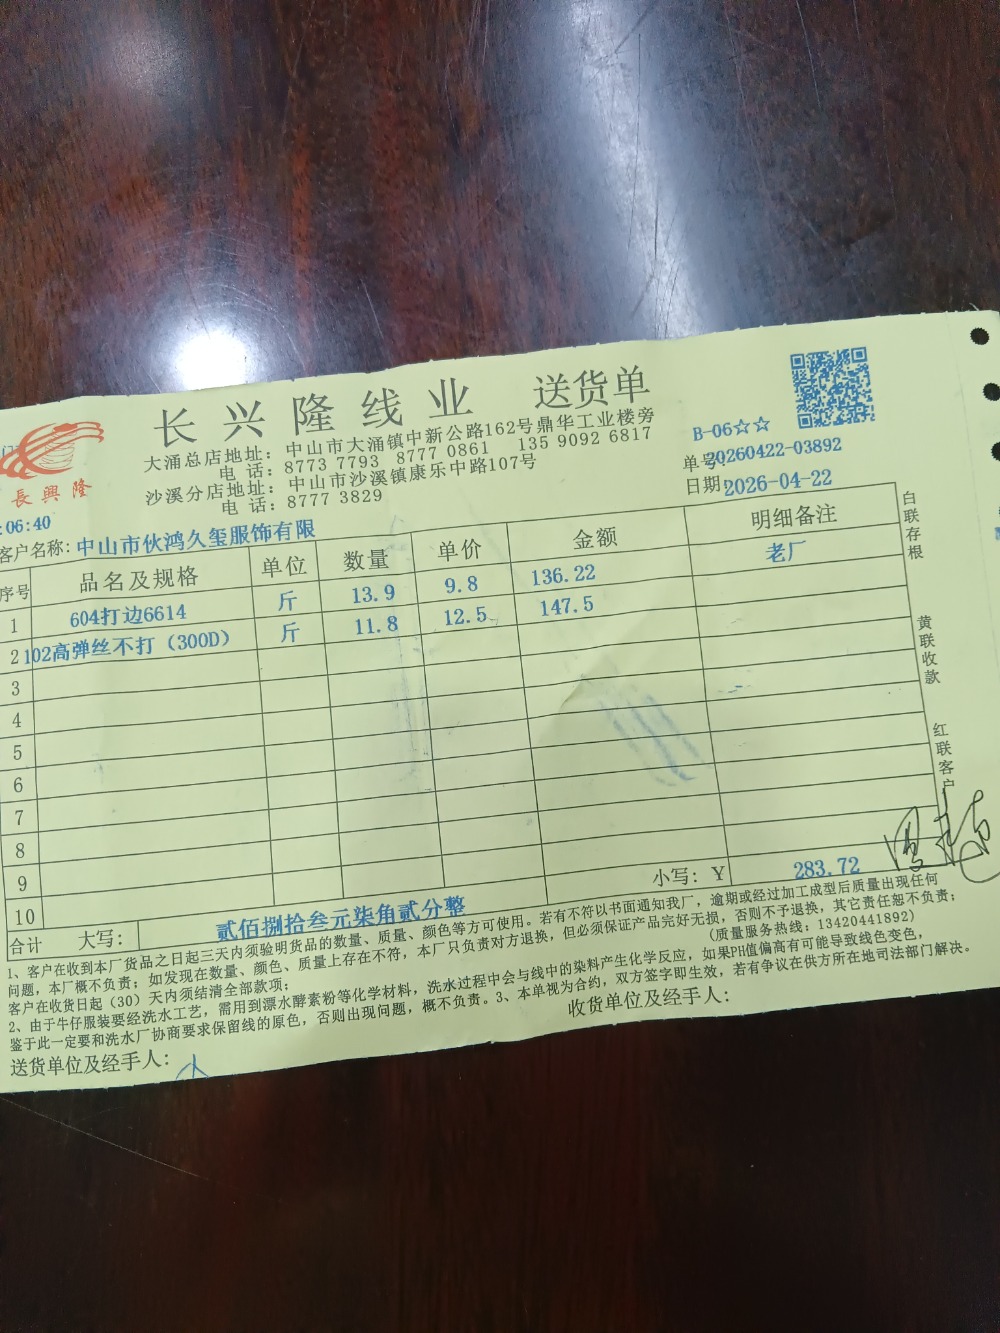 长兴隆线业 送货单
大涌总店地址：中山市大涌镇中新公路162号鼎华工业楼旁
电 话：8773 7793 8777 0861 135 9092 6817
沙溪分店地址：中山市沙溪镇康乐中路107号
电 话：8777 3829
長興隆
B-06☆☆
单号:20260422-03892
日期:2026-04-22
:06:40
客户名称:中山市伙鸿久玺服饰有限
序号 品名及规格 单位 数量 单价 金额 明细备注
1 604打边6614 斤 13.9 9.8 136.22 老厂
2 102高弹丝不打（300D） 斤 11.8 12.5 147.5
3
4
5
6
7
8
9
10
合计 大写：贰佰捌拾叁元柒角贰分整 小写：Y 283.72
白联存根
黄联收款
红联客户
1、客户在收到本厂货品之日起三天内须验明货品的数量、质量、颜色等方可使用。若有不符以书面通知我厂，逾期或经过加工成型后质量出现任何
问题，本厂概不负责；如发现在数量、颜色、质量上存在不符，本厂只负责对方退换，但必须保证产品完好无损，否则不予退换，其它责任恕不负责；
客户在收货日起（30）天内须结清全部款项； （质量服务热线：13420441892）
2、由于牛仔服装要经洗水工艺，需用到漂水酵素粉等化学材料，洗水过程中会与线中的染料产生化学反应，如果PH值偏高有可能导致线色变色，
鉴于此一定要和洗水厂协商要求保留线的原色，否则出现问题，概不负责。3、本单视为合约，双方签字即生效，若有争议在供方所在地司法部门解决。
送货单位及经手人： 收货单位及经手人：